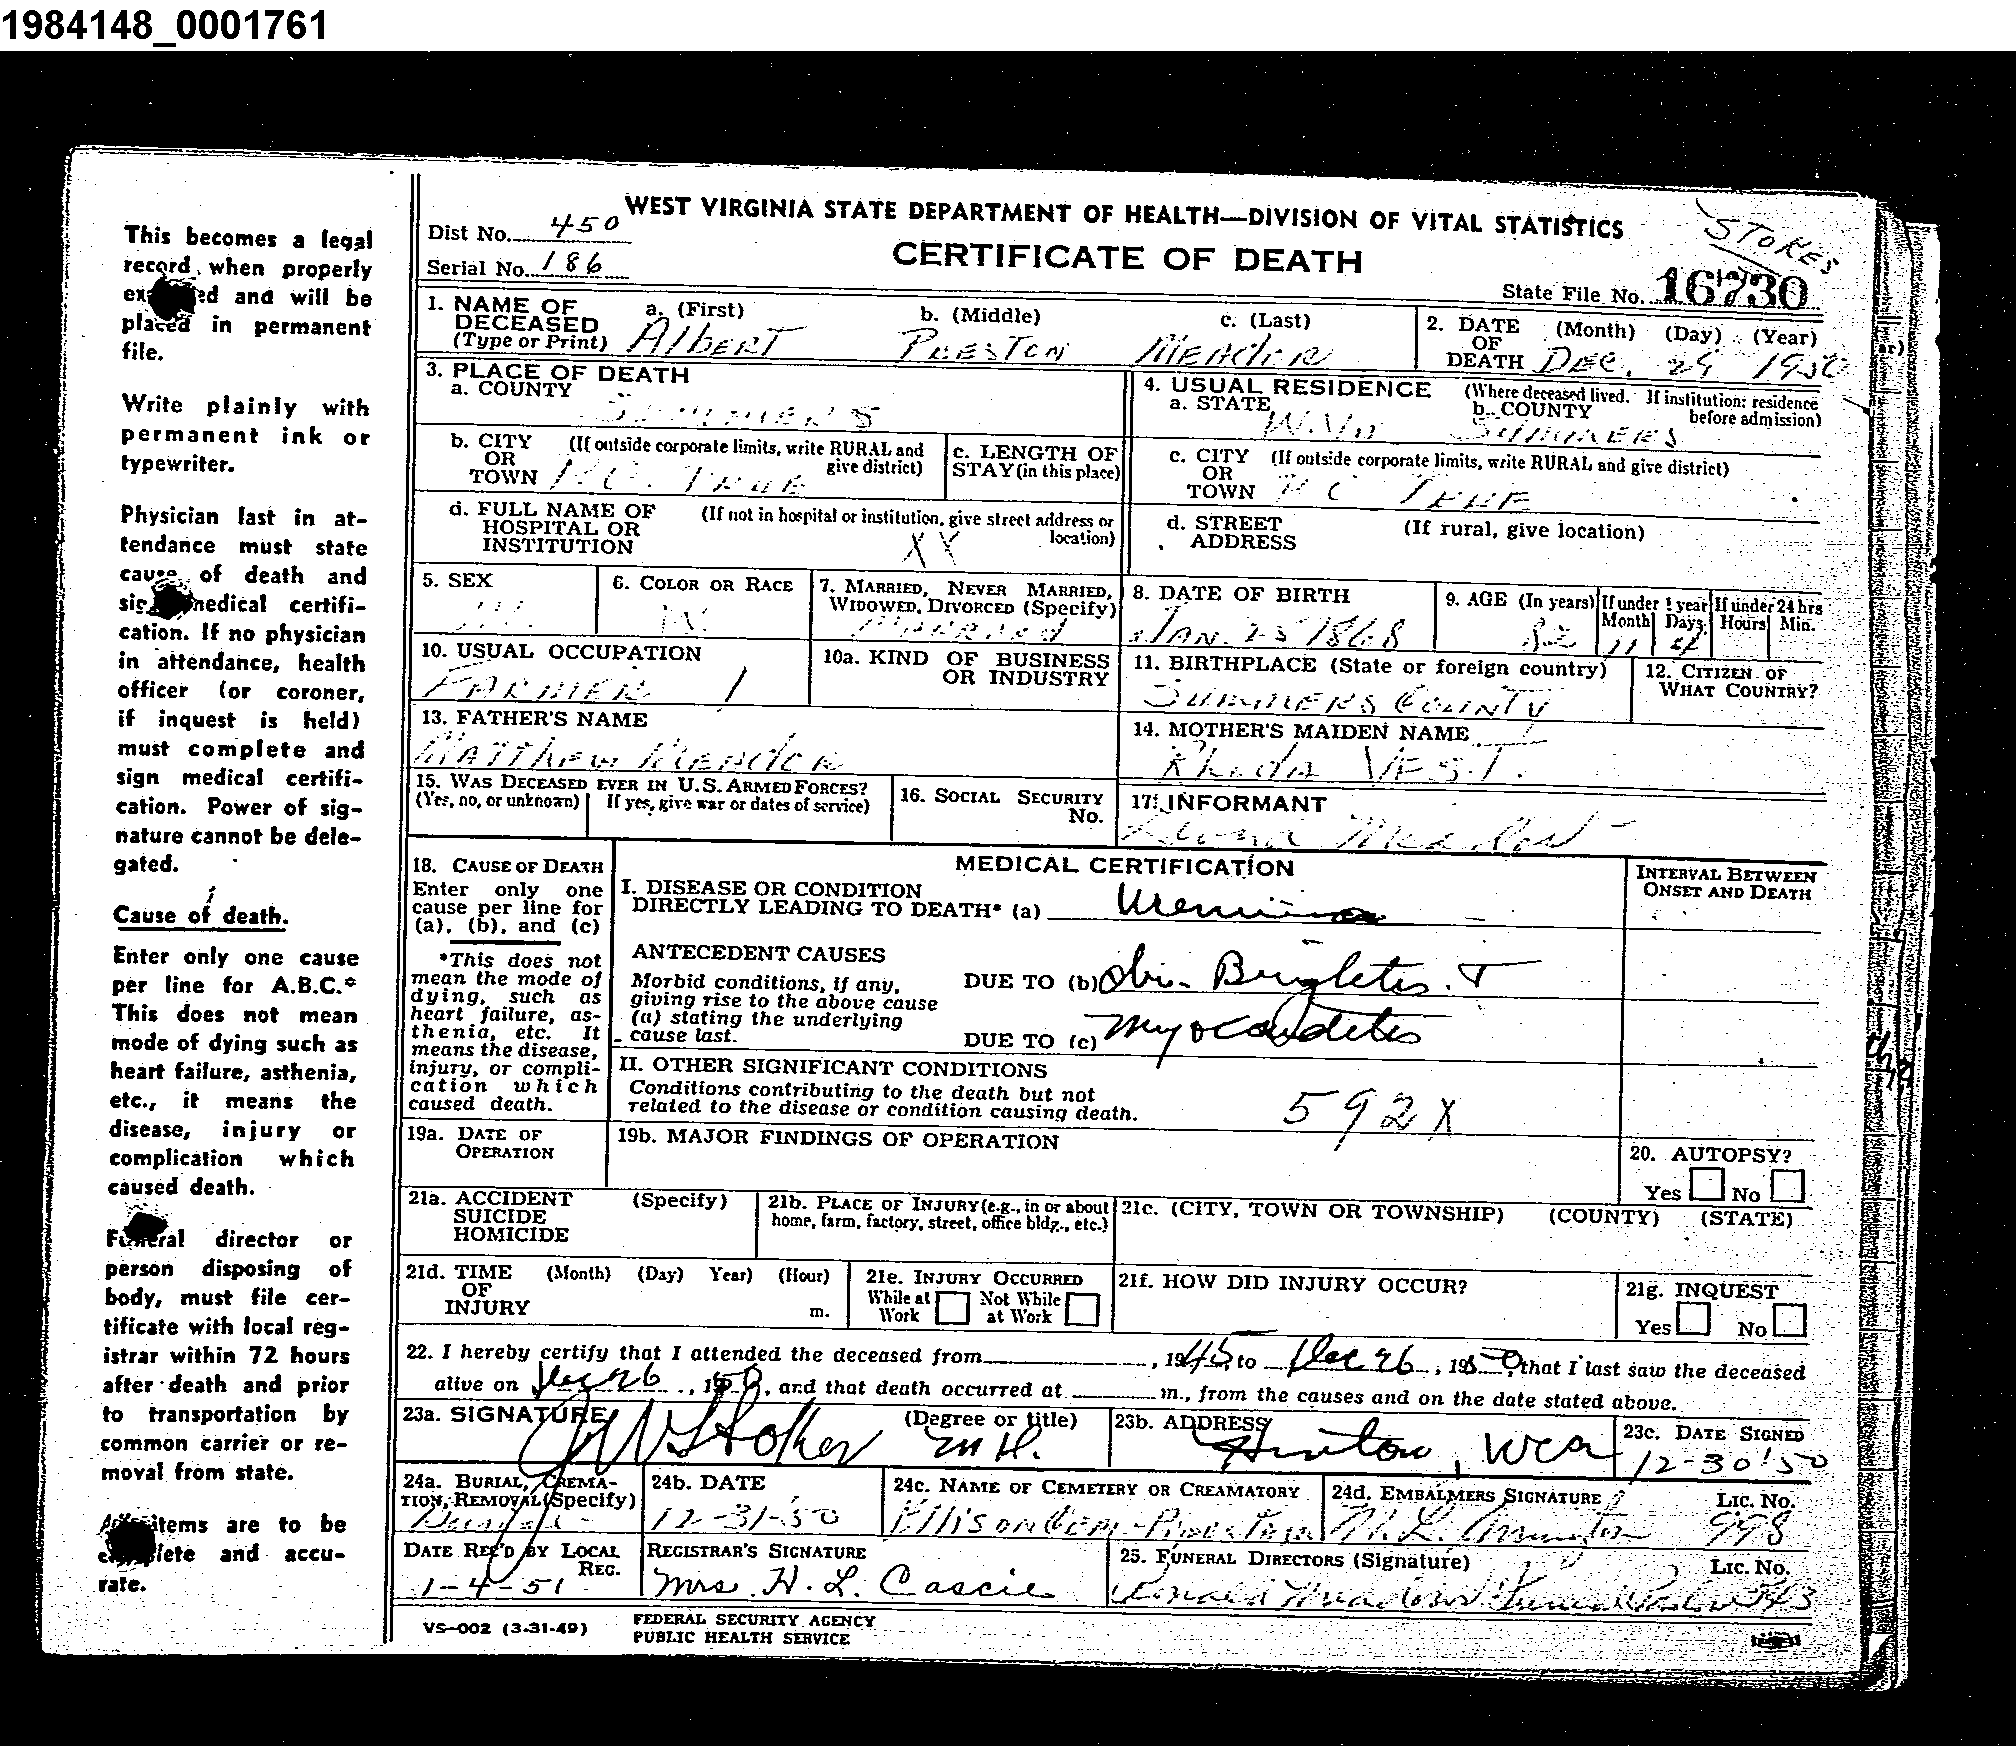 1984148_0001761
This becomes a legal
record when properly
and will be
placed in permanent
file.
Write plainly with
permanent ink or
typewriter.
Physician last in at-
tendance must state
cause of death and
medical certifi-
cation. If no physician
in attendance, health
officer (or coroner,
if inquest is held)
must complete and
sign medical certifi-
cation. Power of sig-
nature cannot be dele-
gated.
Cause of death.
Enter only one cause
per line for A.B.C.*
This does not mean
mode of dying such as
heart failure, asthenia,
etc., it means the
disease, injury or
complication which
caused death.
Funeral director or
person disposing of
body, must file cer-
tificate with local reg-
istrar within 72 hours
after death and prior
to transportation by
common carrier or re-
moval from state.
items are to be
and accu-
rate.
WEST VIRGINIA STATE DEPARTMENT OF HEALTH—DIVISION OF VITAL STATISTICS
Dist No. 450
CERTIFICATE OF DEATH
STOKES
Serial No. 186
State File No. 16730
1. NAME OF DECEASED (Type or Print) a. (First) b. (Middle) c. (Last)
Albert Preston Meador
2. DATE OF DEATH (Month) (Day) (Year)
Dec. 29 1950
3. PLACE OF DEATH
a. COUNTY
Summers
4. USUAL RESIDENCE (Where deceased lived. If institution: residence before admission)
a. STATE b. COUNTY
W.Va Summers
b. CITY OR TOWN (If outside corporate limits, write RURAL and give district)
True
c. LENGTH OF STAY (in this place)
c. CITY OR TOWN (If outside corporate limits, write RURAL and give district)
True
d. FULL NAME OF HOSPITAL OR INSTITUTION (If not in hospital or institution, give street address or location)
XX
d. STREET ADDRESS (If rural, give location)
5. SEX
M
6. COLOR OR RACE
W
7. MARRIED, NEVER MARRIED, WIDOWED, DIVORCED (Specify)
Married
8. DATE OF BIRTH
Jan. 25 1868
9. AGE (In years) If under 1 year Month Days If under 24 hrs Hours Min.
82 11 4
10. USUAL OCCUPATION
Farmer 1
10a. KIND OF BUSINESS OR INDUSTRY
11. BIRTHPLACE (State or foreign country)
Summers County
12. CITIZEN OF WHAT COUNTRY?
13. FATHER'S NAME
Matthew Meador
14. MOTHER'S MAIDEN NAME
Rhoda Vest.
15. WAS DECEASED EVER IN U.S. ARMED FORCES?
(Yes, no, or unknown) If yes, give war or dates of service)
16. SOCIAL SECURITY No.
17. INFORMANT
Meador
18. CAUSE OF DEATH
Enter only one
cause per line for
(a), (b), and (c)
*This does not
mean the mode of
dying, such as
heart failure, as-
thenia, etc. It
means the disease,
injury, or compli-
cation which
caused death.
MEDICAL CERTIFICATION
INTERVAL BETWEEN ONSET AND DEATH
I. DISEASE OR CONDITION
DIRECTLY LEADING TO DEATH* (a) Uremia
ANTECEDENT CAUSES
Morbid conditions, if any,
giving rise to the above cause
(a) stating the underlying
cause last.
DUE TO (b) Chr. Brights. T
DUE TO (c) Myocardites
II. OTHER SIGNIFICANT CONDITIONS
Conditions contributing to the death but not
related to the disease or condition causing death.
592X
19a. DATE OF OPERATION
19b. MAJOR FINDINGS OF OPERATION
20. AUTOPSY?
Yes No
21a. ACCIDENT SUICIDE HOMICIDE (Specify)
21b. PLACE OF INJURY (e.g., in or about home, farm, factory, street, office bldg., etc.)
21c. (CITY, TOWN OR TOWNSHIP) (COUNTY) (STATE)
21d. TIME OF INJURY (Month) (Day) Year) (Hour) m.
21e. INJURY OCCURRED
While at Work Not While at Work
21f. HOW DID INJURY OCCUR?
21g. INQUEST
Yes No
22. I hereby certify that I attended the deceased from , 1945, to Dec 26, 1950, that I last saw the deceased
alive on Dec 26, 1950, and that death occurred at m., from the causes and on the date stated above.
23a. SIGNATURE (Degree or title)
JW Stokes M.D.
23b. ADDRESS
Hinton, WVa
23c. DATE SIGNED
12-30'50
24a. BURIAL, CREMATION, REMOVAL (Specify)
Burial
24b. DATE
12-31-50
24c. NAME OF CEMETERY OR CREAMATORY
Ellison Cem-
24d. EMBALMERS SIGNATURE LIC. NO.
998
DATE REC'D BY LOCAL REG.
1-4-51
REGISTRAR'S SIGNATURE
Mrs. H. L. Cascie
25. FUNERAL DIRECTORS (Signature) LIC. NO.
Ronald Meadows Funeral Parlor 343
VS-002 (3-31-49)
FEDERAL SECURITY AGENCY
PUBLIC HEALTH SERVICE